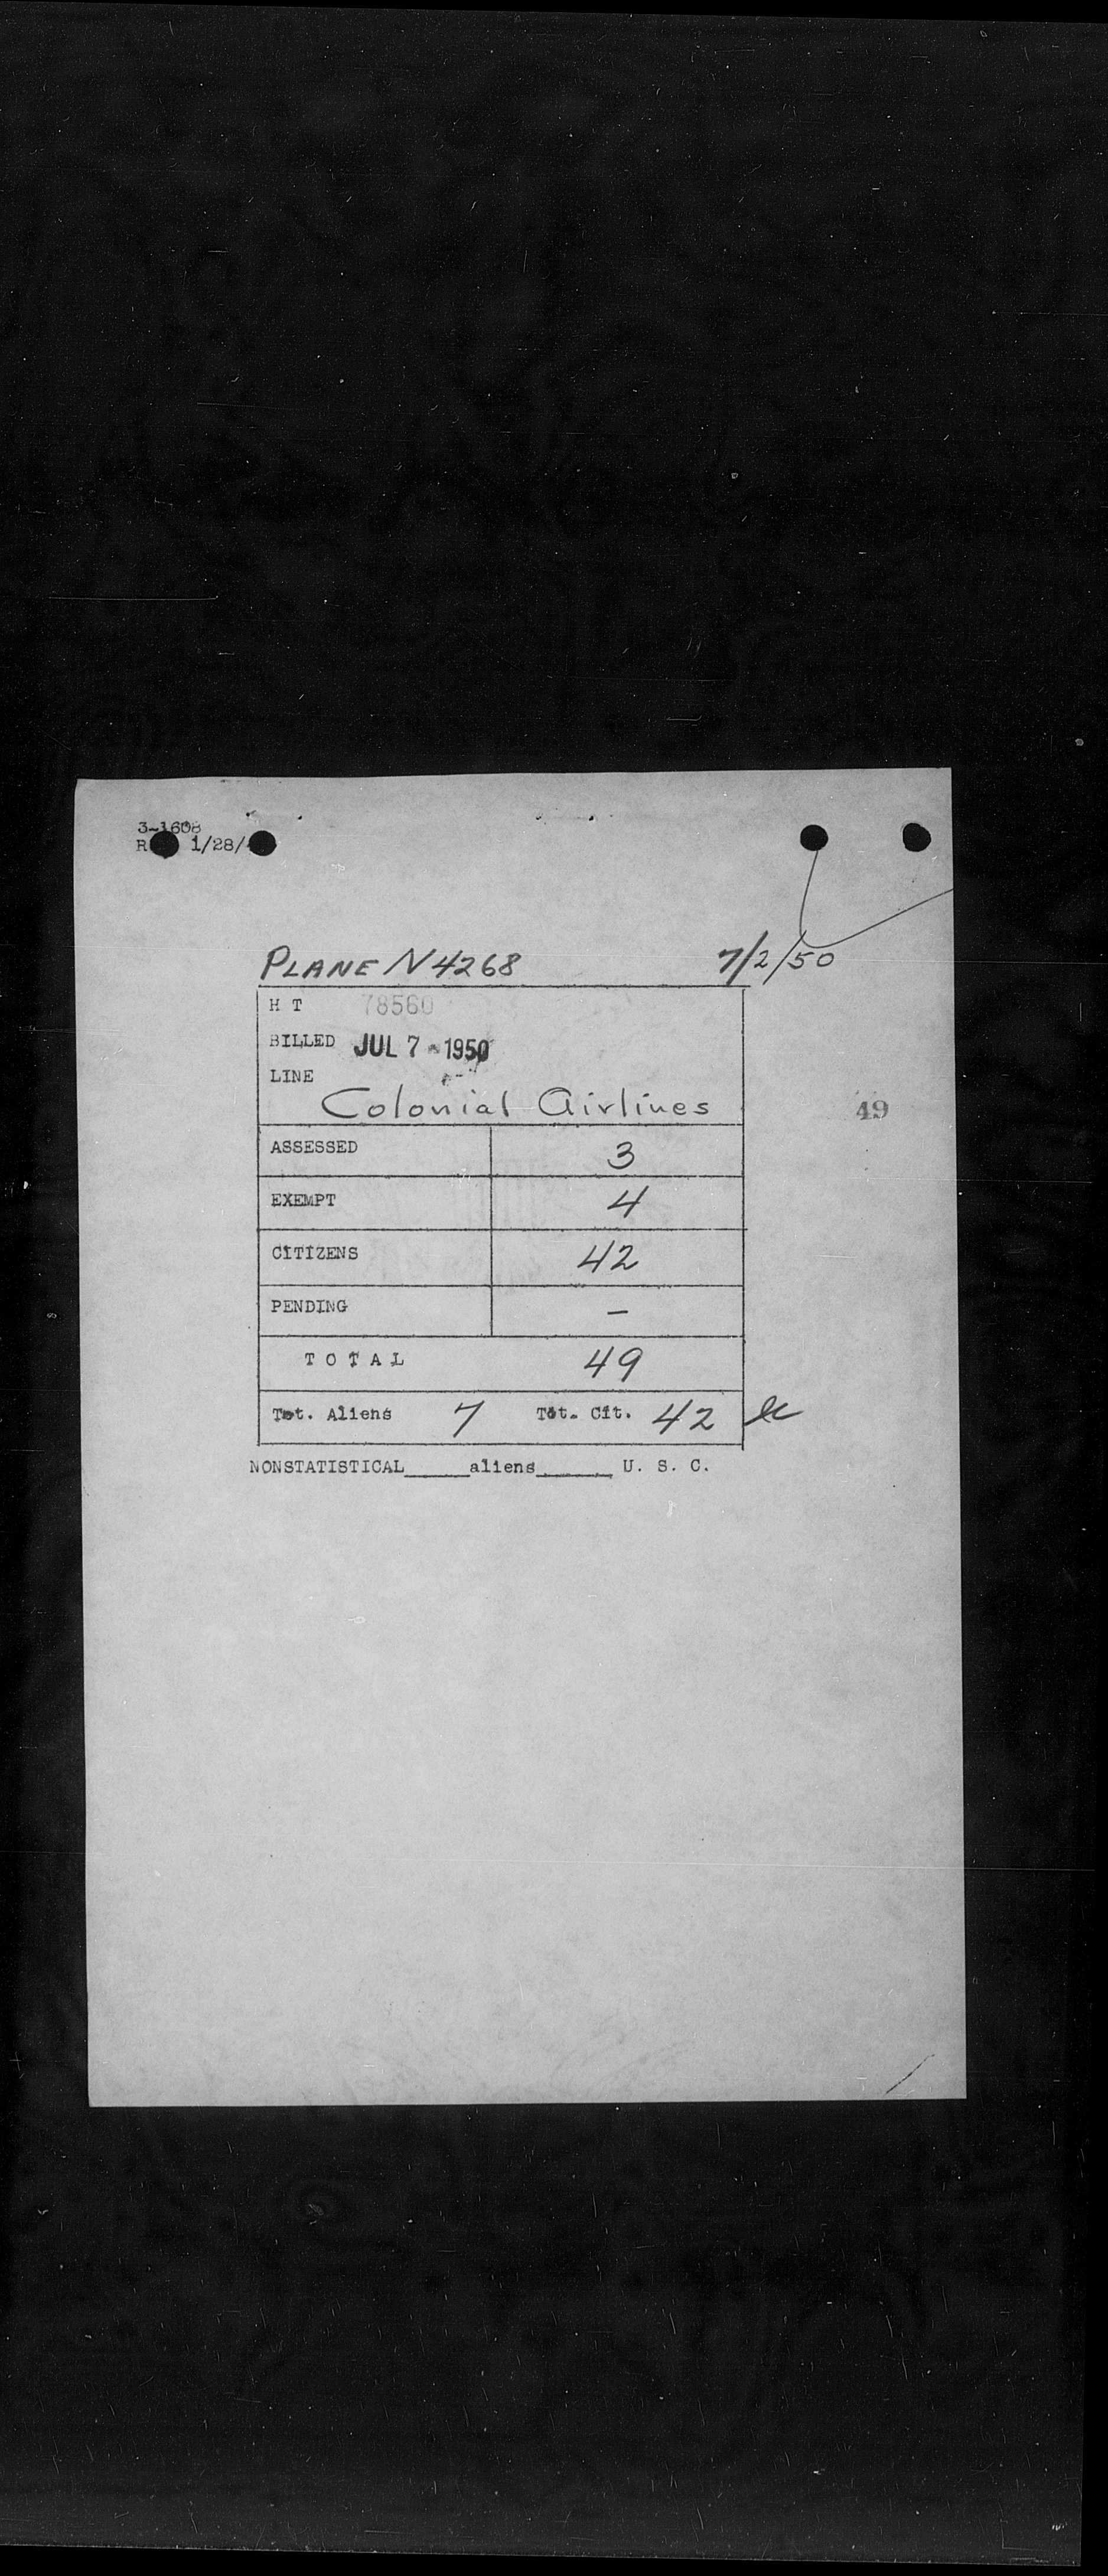 3-1608
1/28/
PLANE N4268 7/2/50
H T 78560
BILLED JUL 7 - 1950
LINE
Colonial Airlines
49
ASSESSED 3
EXEMPT 4
CITIZENS 42
PENDING –
TOTAL 49
Tot. Aliens 7 Tot. Cit. 42
NONSTATISTICAL_____aliens______ U. S. C.